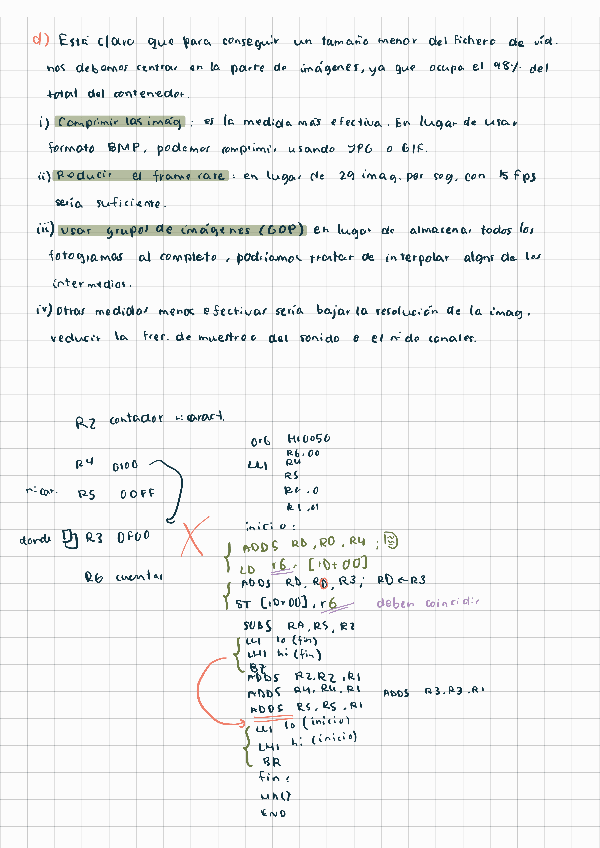 d) Está claro que para conseguir un tamaño menor del fichero de vid.
nos debemos centrar en la parte de imágenes, ya que ocupa el 98% del
total del contenedor.
i) Comprimir las imág: es la medida más efectiva. En lugar de usar
formato BMP, podemos comprimir usando JPG o GIF.
ii) Reducir el frame rate: en lugar de 29 imag. por seg, con 15 fps
sería suficiente.
iii) usar grupos de imágenes (GOP) en lugar de almacenar todos los
fotogramas al completo, podríamos tratar de interpolar algns de los
intermedios.
iv) Otras medidas menos efectivas sería bajar la resolución de la imag.
reducir la frec. de muestreo del sonido o el nº de canales.
R2 contador
ORG H'0050
R6,00
R4 0100
LLI R4
R5
nº car. R5 00FF
R0,0
R1,01
inicio:
donde R3 0F00
ADDS R0, R0, R4;
LD r6, [10+00]
R6 cuentas
ADDS R0, R0, R3; R0←R3
ST [10+00], r6 deben coincidir
SUBS R0, R5, R2
LLI lo (fin)
LHI hi (fin)
BZ
ADDS R2, R2, R1
ADDS R4, R4, R1 ADDS R3, R3, R1
ADDS R5, R5, R1
LLI lo (inicio)
LHI hi (inicio)
BR
fin:
END